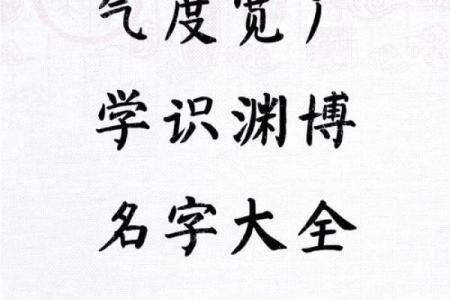 气度宽广
学识渊博
名字大全